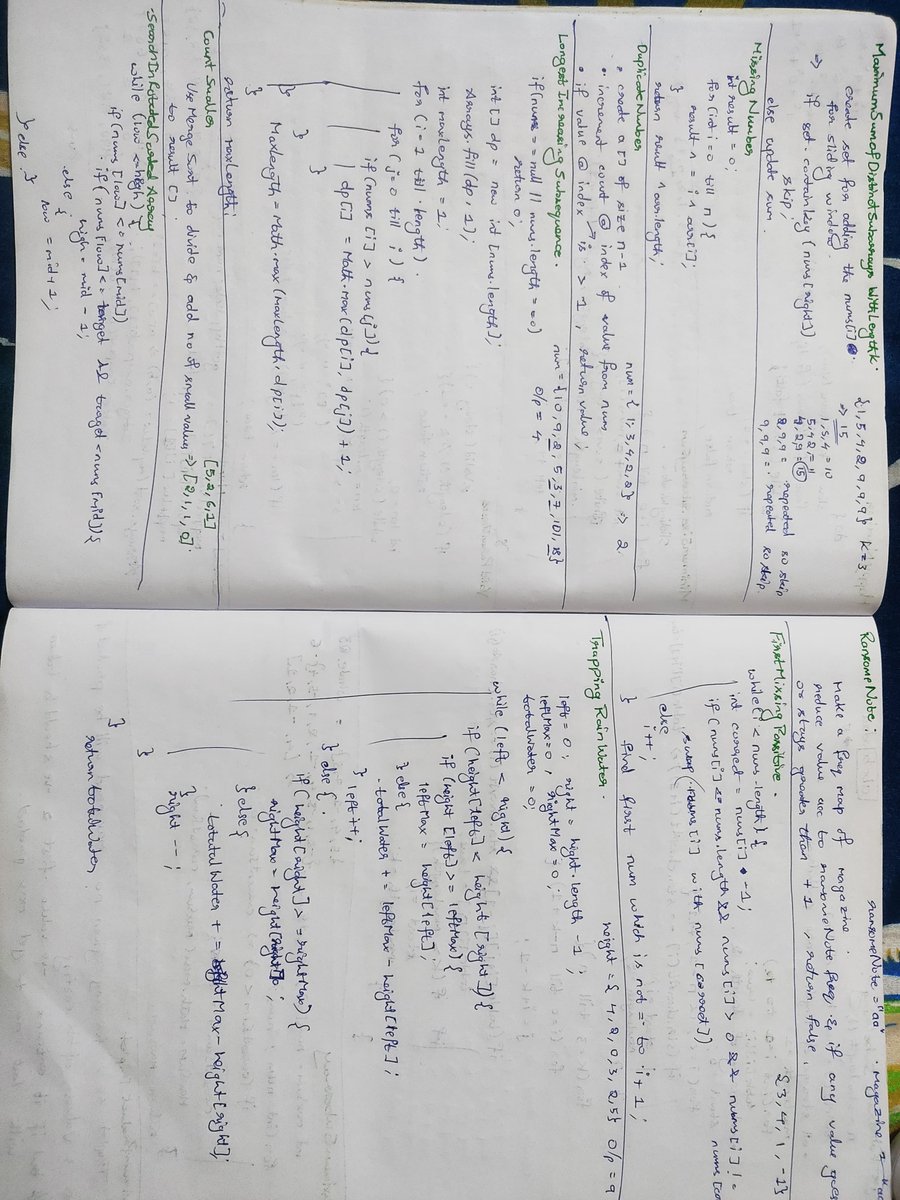 Maximum Sum of Distinct Subarrays With Length K.
{1,5,4,2,9,9,9} K=3
create set for adding the nums[i]
for sliding window.
⇒ 15
1,5,4 = 10
⇒ if set contain key (nums[right])
5,4,2 = 11
skip;
4,2,9 = 15
else update sum.
2,9,9 = repeated so skip
9,9,9 = repeated so skip.
Missing Number
int result = 0;
for(int i=0 till n) {
result ^= i ^ arr[i];
}
return result ^ arr.length;
Duplicate Number
num = {1,3,4,2,2} ⇒ 2
• create a [] of size n-1.
• increment count @ index of value from num
• if value @ index is > 1, return value;
Longest Increasing Subsequence.
num = {10,9,2,5,3,7,101,18}
if(nums == null || nums.length == 0)
O/P = 4
return 0;
int[] dp = new int[nums.length];
Arrays.fill(dp,1);
int maxlength = 1;
for (i=1 till length).
for (j=0 till i) {
if(nums[i] > nums[j]) {
dp[i] = Math.max(dp[i], dp[j]) + 1;
}
}
MaxLength = Math.max(maxLength, dp[i]);
}
return maxLength;
Count Smaller
[5,2,6,1]
Use Merge Sort to divide & add no of small values ⇒ [2,1,1,0].
to result [].
Search In Rotated Sorted Array
while (low <= high) {
if (nums[low] <= nums[mid])
if (nums[low] <= target && target < nums[mid]) {
high = mid - 1;
else {
low = mid+1;
} else }
Ransome Note:
ransomeNote = "aa". Magazine
Make a freq map of magazine.
reduce value acc to ransomeNote freq & if any value goes
or stays greater than +1, return false.
First Missing Positive.
{3,4,1,-1}
while(i < nums.length) {
int correct = nums[i] -1;
if (nums[i] <= nums.length && nums[i] > 0 && nums[i] !=
swap(nums[i] with nums[correct])
else
i++;
} find first num which is not = to i+1;
Trapping Rain Water.
height = {4,2,0,3,2,5} O/P = 9
left = 0, right = height.length -1;
leftMax=0, rightMax=0;
totalWater = 0;
while (left < right) {
if (height[left] < height[right]) {
if (height[left] >= leftMax) {
leftMax = height[left];
} else {
totalWater += leftMax - height[left];
} left++;
} else {
if (height[right] >= rightMax) {
rightMax = height[right];
} else {
totatal Water += rightMax - height[right];
}
right --;
}
}
return totalWater.